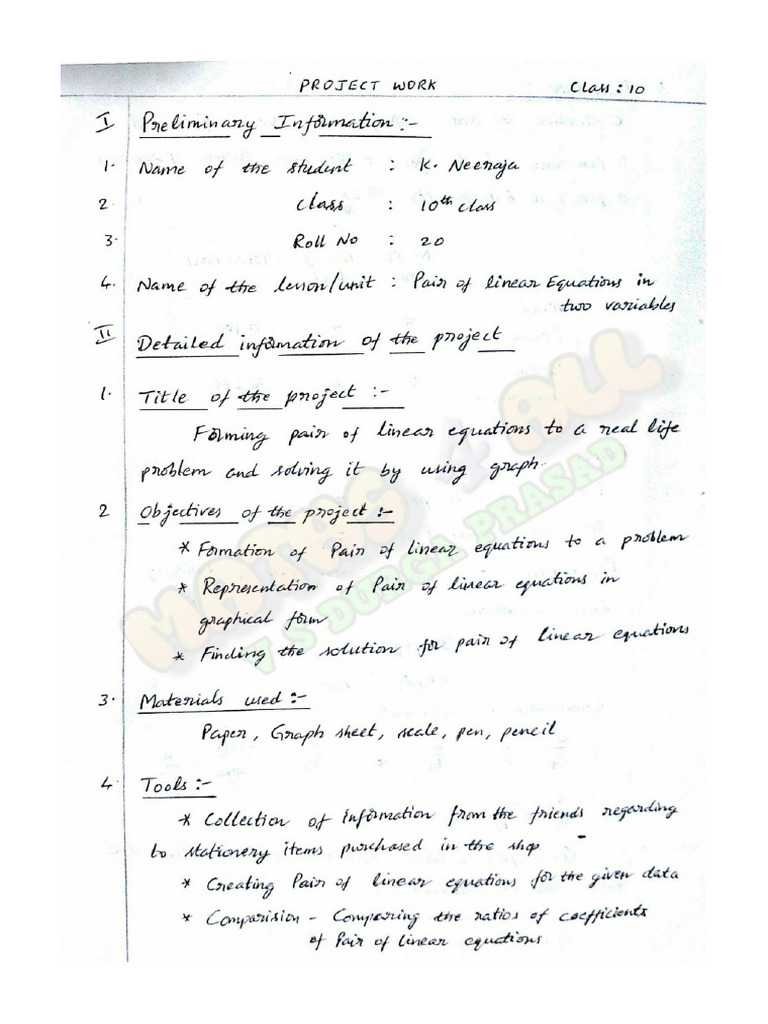 PROJECT WORK Class: 10
I Preliminary Information:-
1. Name of the student : K. Neeraja
2. class : 10th class
3. Roll No : 20
4. Name of the lesson/unit : Pair of linear Equations in
two variables
II Detailed information of the project
1. Title of the project :-
Forming pair of linear equations to a real life
problem and solving it by using graph.
2 Objectives of the project :-
* Formation of Pair of linear equations to a problem
* Representation of Pair of linear equations in
graphical form
* Finding the solution for pair of linear equations
3. Materials used :-
Paper, Graph sheet, scale, pen, pencil
4. Tools :-
* Collection of information from the friends regarding
to stationery items purchased in the shop
* Creating Pair of linear equations for the given data
* Comparision - Comparing the ratios of coefficients
of Pair of linear equations
MATHS 4 ALL
V S DURGA PRASAD